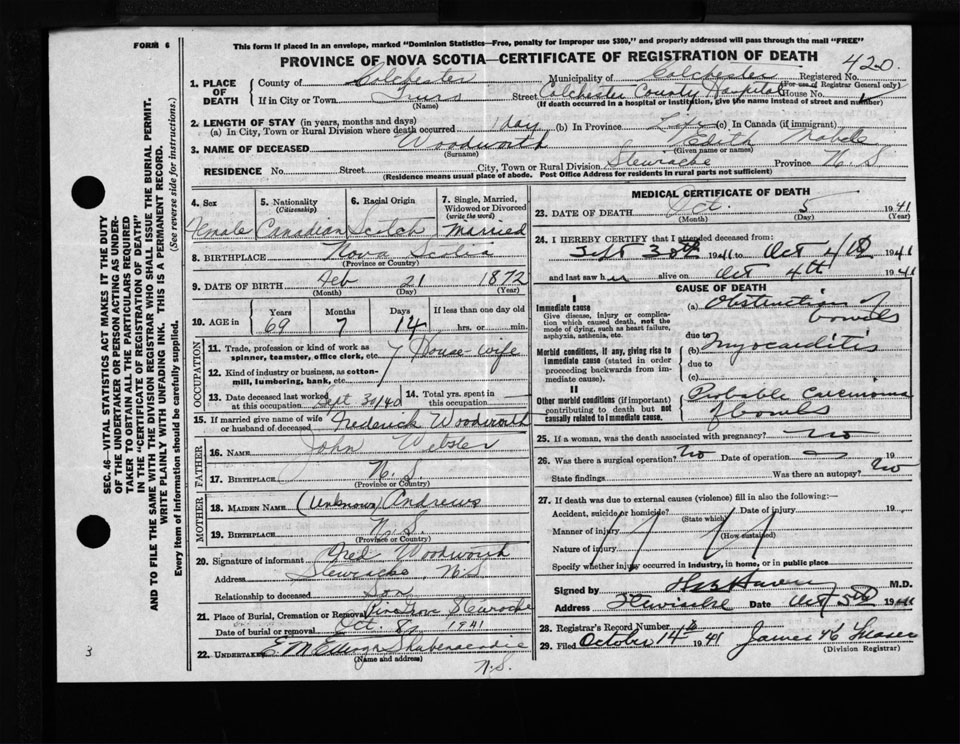 FORM 6
This form if placed in an envelope, marked "Dominion Statistics—Free, penalty for improper use $300," and properly addressed will pass through the mail "FREE"
PROVINCE OF NOVA SCOTIA—CERTIFICATE OF REGISTRATION OF DEATH
420.
1. PLACE OF DEATH
County of Colchester Municipality of Colchester Registered No.
(For use of Registrar General only)
If in City or Town Truro Street Colchester County Hospital House No.
(Name) (If death occurred in a hospital or institution, give the name instead of street and number)
2. LENGTH OF STAY (in years, months and days)
(a) In City, Town or Rural Division where death occurred 1 day (b) In Province Life (c) In Canada (if immigrant)
3. NAME OF DECEASED Woodworth Edith Mabelle
(Surname) (Given name or names)
RESIDENCE No. Street City, Town or Rural Division Stewiacke Province N.S.
(Residence means usual place of abode. Post Office Address for residents in rural parts not sufficient)
4. Sex
Female
5. Nationality
(Citizenship)
Canadian
6. Racial Origin
Scotch
7. Single, Married, Widowed or Divorced
(write the word)
Married
8. BIRTHPLACE Nova Scotia
(Province or Country)
9. DATE OF BIRTH Feb 21 1872
(Month) (Day) (Year)
10. AGE in
Years Months Days If less than one day old
69 7 14 hrs. or min.
OCCUPATION
11. Trade, profession or kind of work as spinner, teamster, office clerk, etc. House-wife
12. Kind of industry or business, as cotton-mill, lumbering, bank, etc.
13. Date deceased last worked at this occupation Sept 30/40
14. Total yrs. spent in this occupation
15. If married give name of wife or husband of deceased Frederick Woodworth
FATHER
16. NAME John Webster
17. BIRTHPLACE N.S.
(Province or Country)
MOTHER
18. MAIDEN NAME (unknown) Andrews
19. BIRTHPLACE N.S.
(Province or Country)
20. Signature of informant Fred Woodworth
Address Stewiacke, N.S
Relationship to deceased Son
21. Place of Burial, Cremation or Removal Pine Grove Stewiacke
Date of burial or removal Oct. 8, 1941
22. UNDERTAKER E M Shubenacadie
(Name and address) N.S.
MEDICAL CERTIFICATE OF DEATH
23. DATE OF DEATH Oct. 5 1941
(Month) (Day) (Year)
24. I HEREBY CERTIFY that I attended deceased from:
Sept 30th 1941 to Oct 1941
and last saw her alive on Oct 4th 1941
CAUSE OF DEATH
I
Immediate cause
Give disease, injury or complication which caused death, not the mode of dying, such as heart failure, asphyxia, asthenia, etc.
(a) Obstruction of bowels
due to
Morbid conditions, if any, giving rise to immediate cause (stated in order proceeding backwards from immediate cause).
(b) myocarditis
due to
(c)
II
Other morbid conditions (if important) contributing to death but not causally related to immediate cause.
Probable carcinoma of bowels
25. If a woman, was the death associated with pregnancy? no
26. Was there a surgical operation? No Date of operation 19
State findings Was there an autopsy? No
27. If death was due to external causes (violence) fill in also the following:—
Accident, suicide or homicide? Date of injury 19
(State which)
Manner of injury
(How sustained)
Nature of injury
Specify whether injury occurred in industry, in home, or in public place
Signed by M.D.
Address Date Oct 5th 1941
28. Registrar's Record Number
29. Filed October 14 1941 James H Fraser
(Division Registrar)
SEC. 46—VITAL STATISTICS ACT MAKES IT THE DUTY
OF THE UNDERTAKER OR PERSON ACTING AS UNDERTAKER
TO OBTAIN ALL THE PARTICULARS REQUIRED
IN THE "CERTIFICATE OF REGISTRATION OF DEATH"
AND TO FILE THE SAME WITH THE DIVISION REGISTRAR WHO SHALL ISSUE THE BURIAL PERMIT.
WRITE PLAINLY WITH UNFADING INK. THIS IS A PERMANENT RECORD.
Every item of information should be carefully supplied. (See reverse side for instructions.)
3